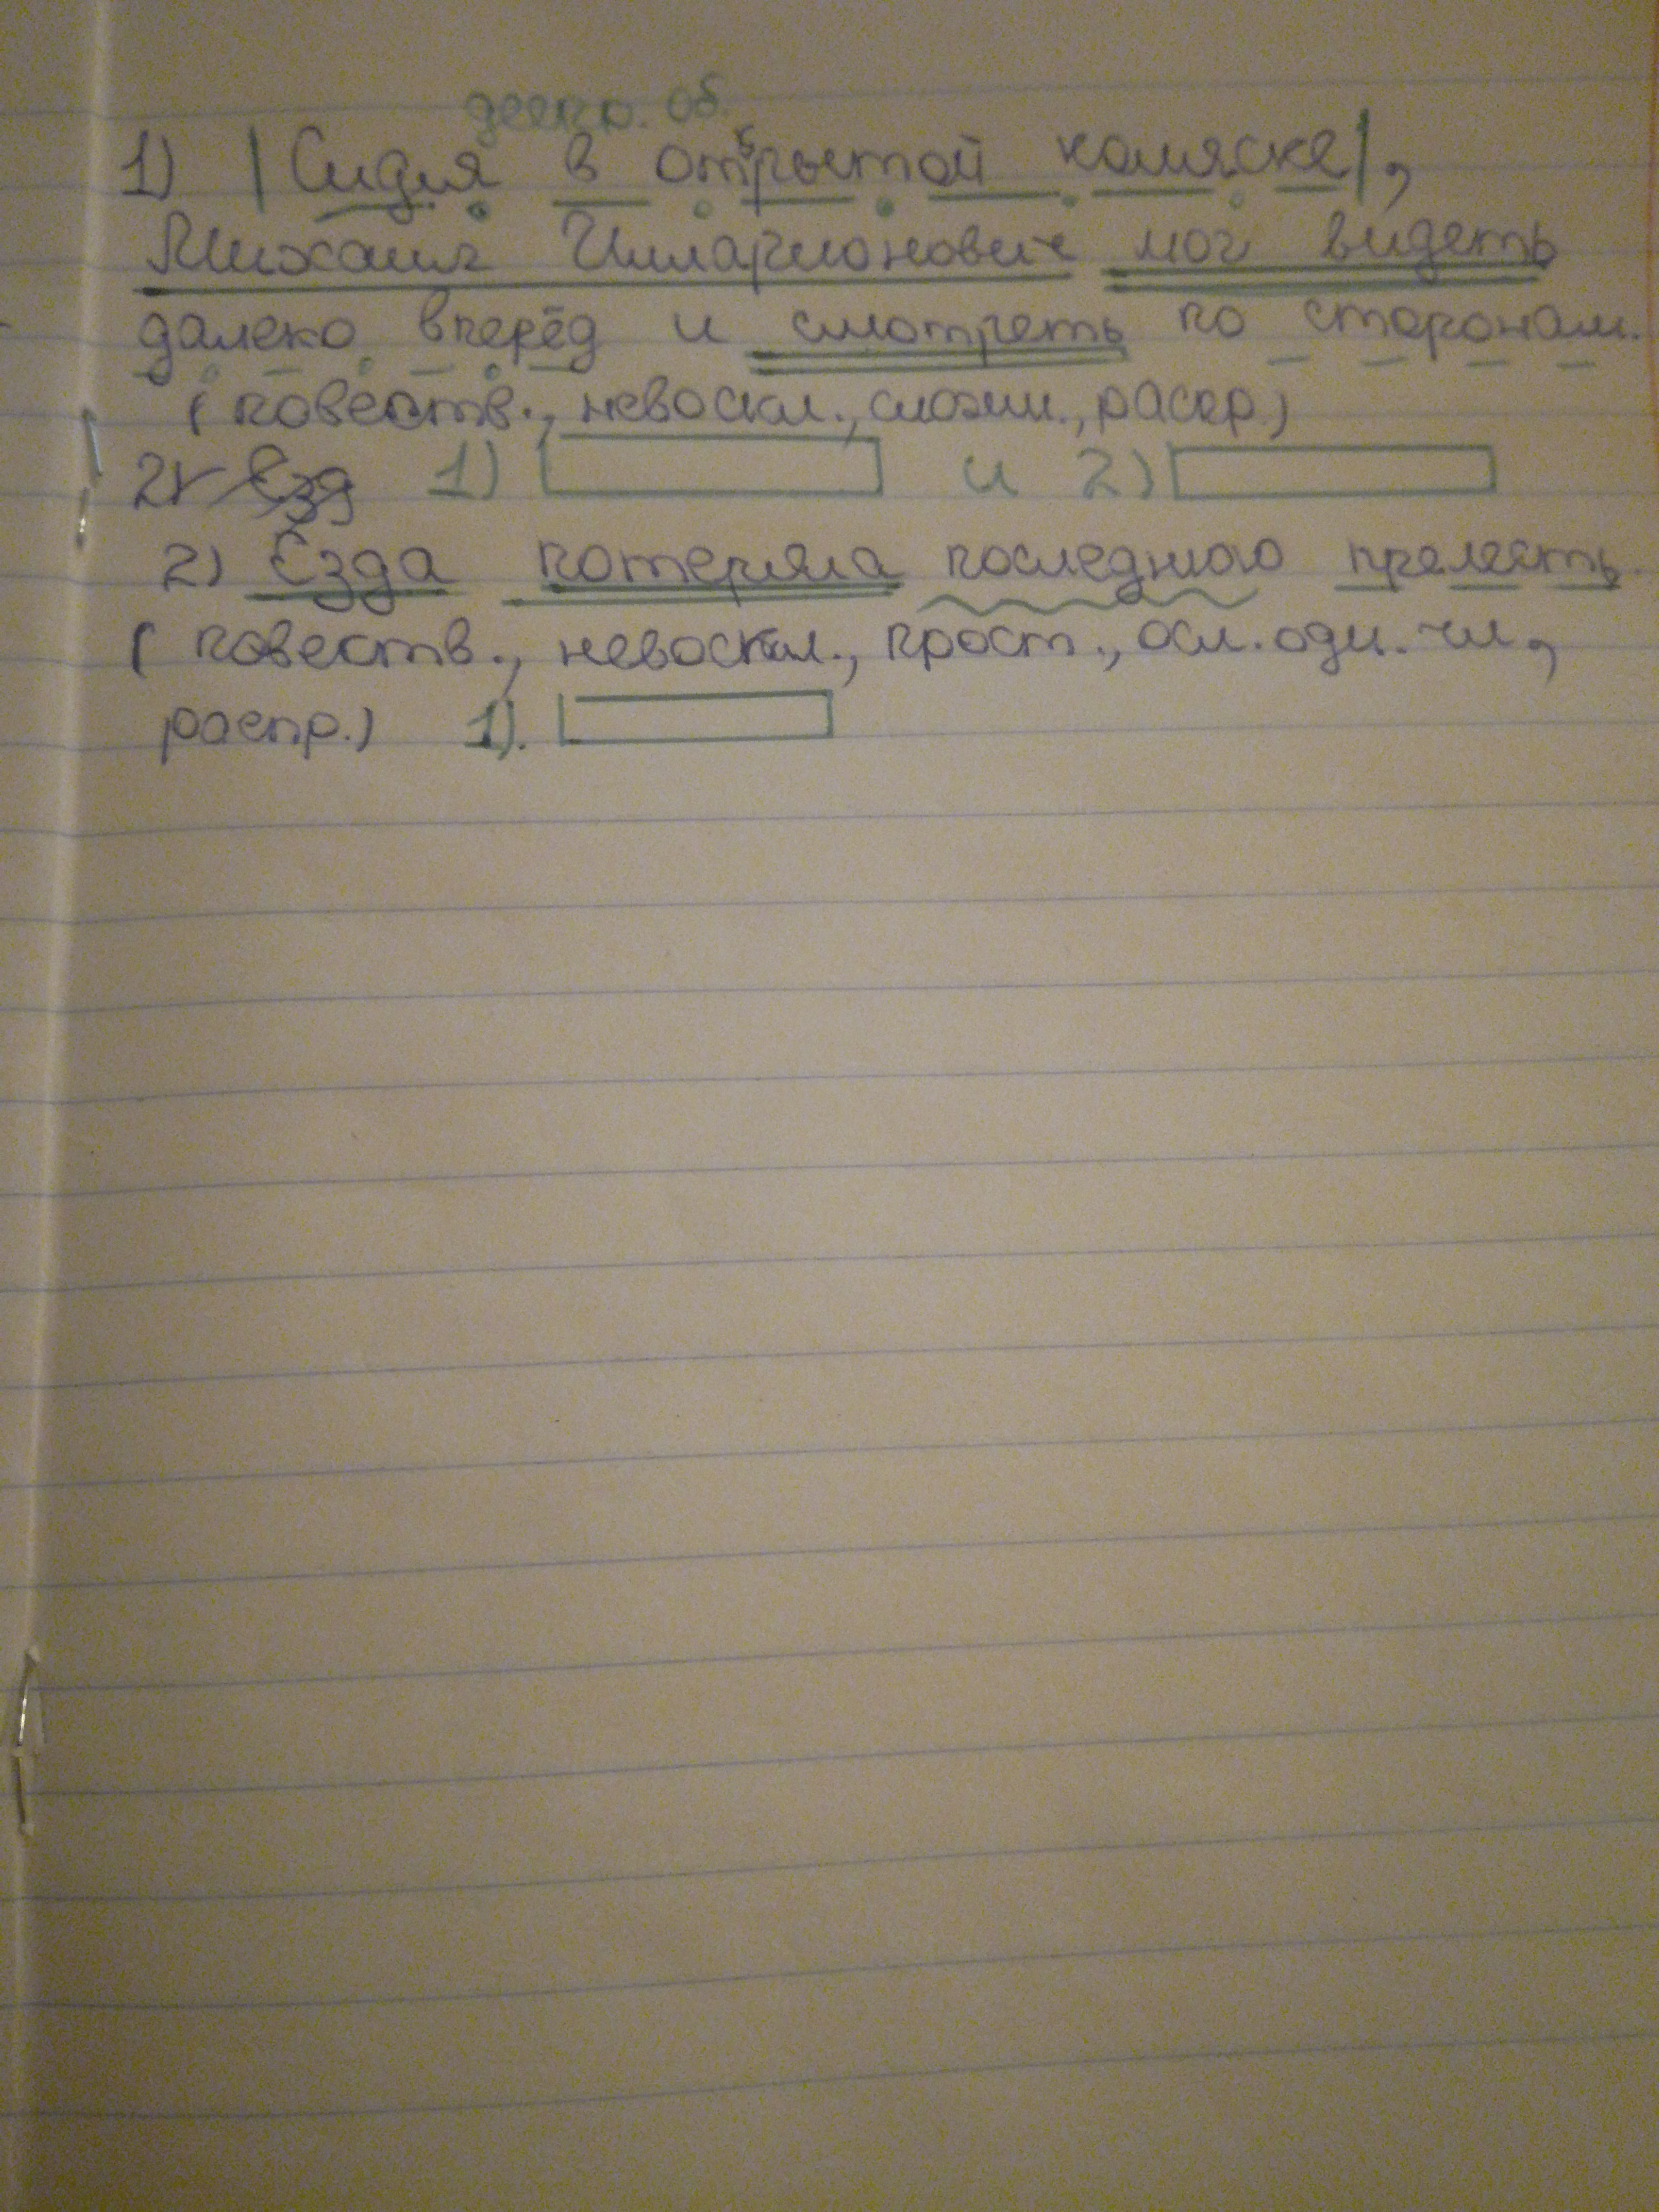 деепр. об.
1) |Сидя в открытой коляске|,
Михаил Илларионович мог видеть
далеко вперёд и смотреть по сторонам.
(повеств., невоскл., сложн., распр.)
2) Езд 1) и 2)
2) Езда потеряла последнюю прелесть.
(повеств., невоскл., прост., осл. одн. чл,
распр.) 1).